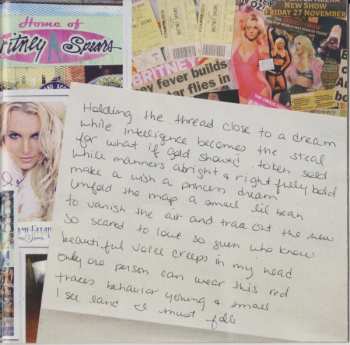 Home of
Britney Spears
NEW SHOW
FRIDAY 27 NOVEMBER
BRITNEY
fever builds
star flies in
Holding the thread close to a dream
while intelligence becomes the steal
for what if gold shaved token seld
while manners abright & rightfully bold
make a wish a princess dream
unfold the map a small lil bean
to vanish the air and trace out the new
so scared to love so given who knew
beautiful voice creeps in my head
only one person can wear this red
traces behavior young & small
I see land I must fall